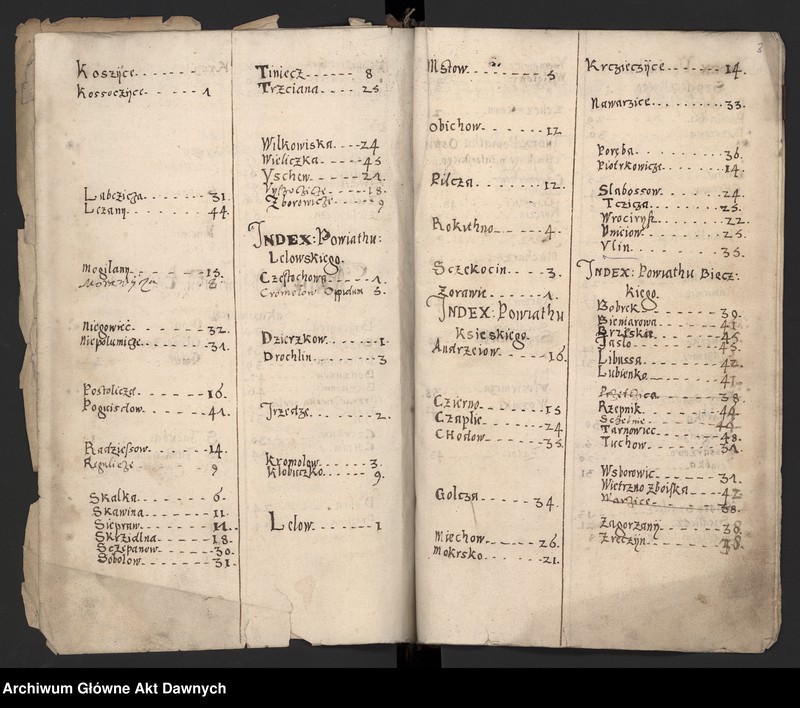 Koszijce
Kossoczijce 1
Labczicza 31.
Lczany 44.
Mogilany 13.
8.
Niegowiec 32.
Niepolumicze 31.
Postolicza 16.
Poguislow 41.
Radziessow 14.
Regulicze 9
Skalka 6.
Skawina 11.
Siepraw 11.
Skrzidlna 18.
Sczepanow 30.
Sobolow 31.
Tiniecz 8
Trzciana 25
Wilkowiska 24
Wieliczka 45
Vschew 21.
18.
Zborowicze 9
INDEX: Powiathu:
Lelowskiego.
Częstochowa 1.
Cromolow Oppidum 3.
Dzierzkow 1.
Drochlin 3
Irzedze 2.
Kromolow 3.
Klobuczko 9.
Lelow 1
Mstow 5
Obichow 12
Pilcza 12.
Rokithno 4.
Sczekocin 3.
Zorawie 1.
INDEX Powiathu
Ksieskiego.
Andrzeiow 16.
Czierno 15
Czaplie 24
Chodow 35.
Golcza 34.
Miechow 26.
Mokrsko 21.
3
Krczieczijce 14.
Nawarzice 33.
Poręba 36.
Piotrkowicze 14.
Slabossow 24.
Tcziga 25.
Wrocirysz 22.
Vniciow 25.
Vlin 35.
INDEX: Powiathu Biecz:
kiego.
Bobrek 39.
Bieniarowa 41
Brzeskie 45
Jaslo 43.
Libussa 42.
Lubienko 41.
38
Rzepnik 44
44
Tarnowiec 48.
Tuchow 31.
Wsborowic 31.
Wietrzno Zboiska 42
Warzice
38.
Zagorzany 38
Zreczijn 38.
Archiwum Główne Akt Dawnych